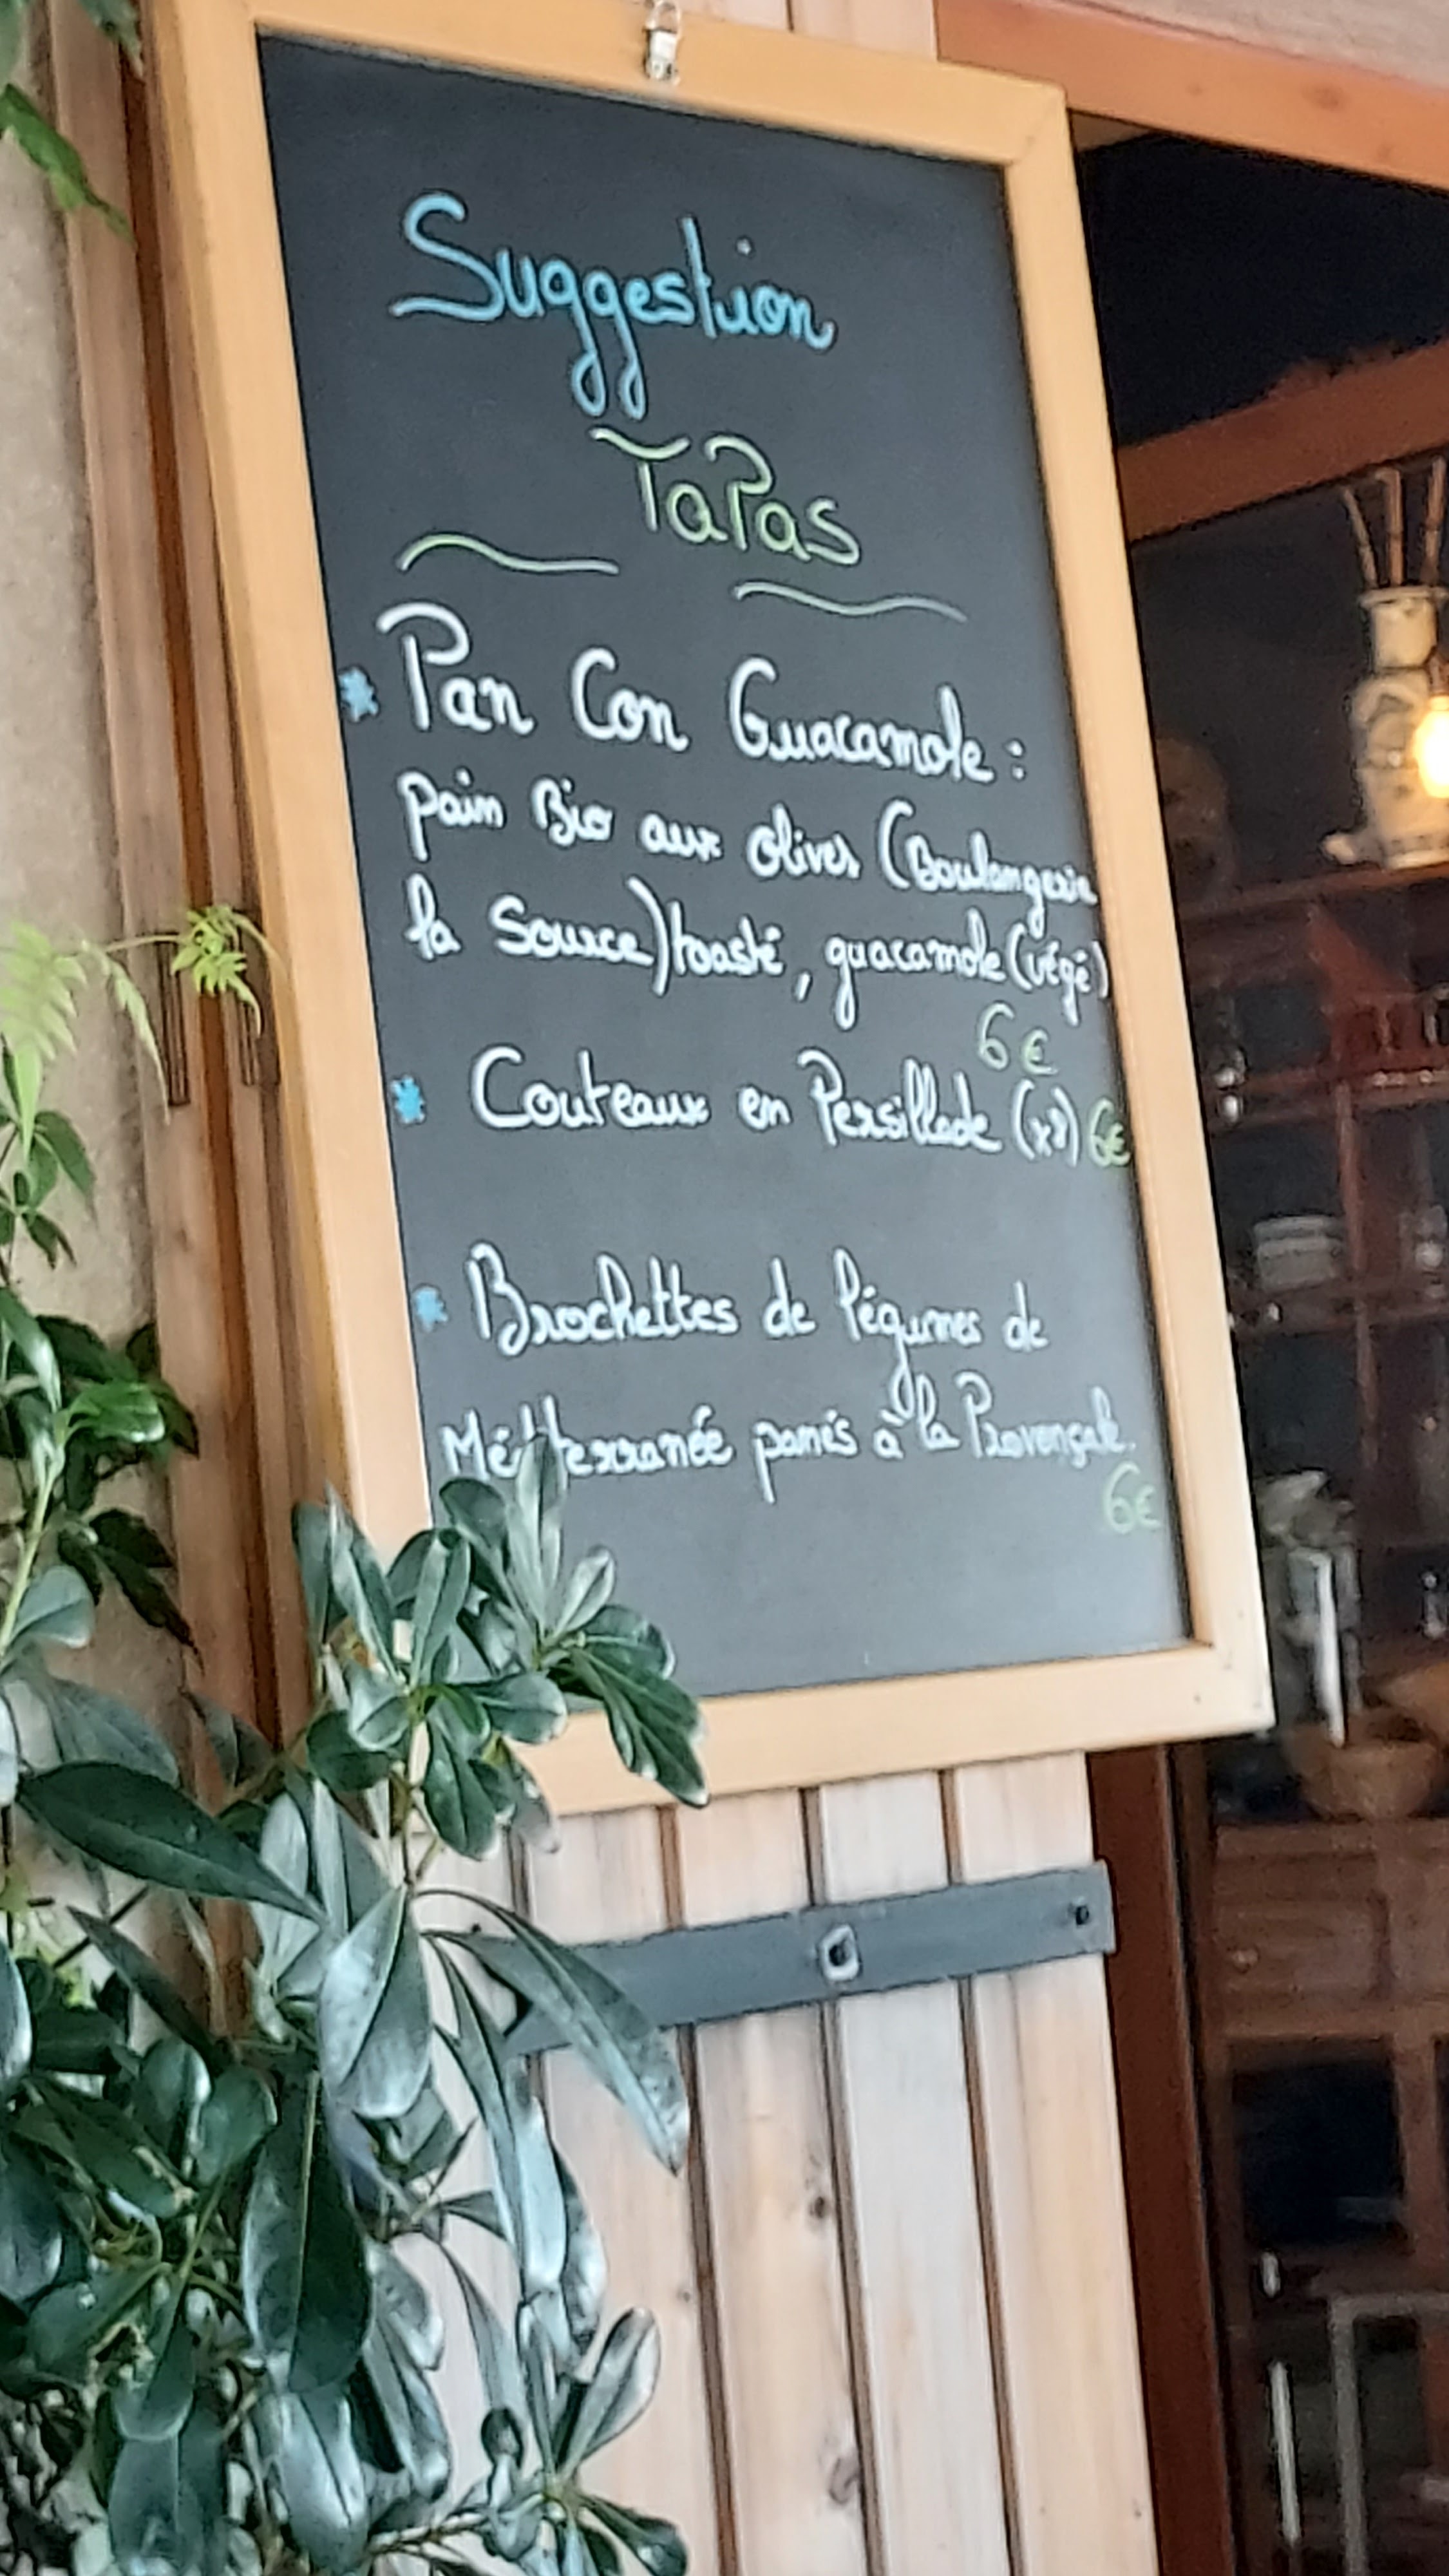 Suggestion
TaPas
* Pan Con Guacamole :
pain Bio aux olives (Boulangerie
la Source) toasté, guacamole (végé)
6€
* Couteaux en Persillade (x8) 6€
* Brochettes de légumes de
Méditerranée panés à la Provençale.
6€